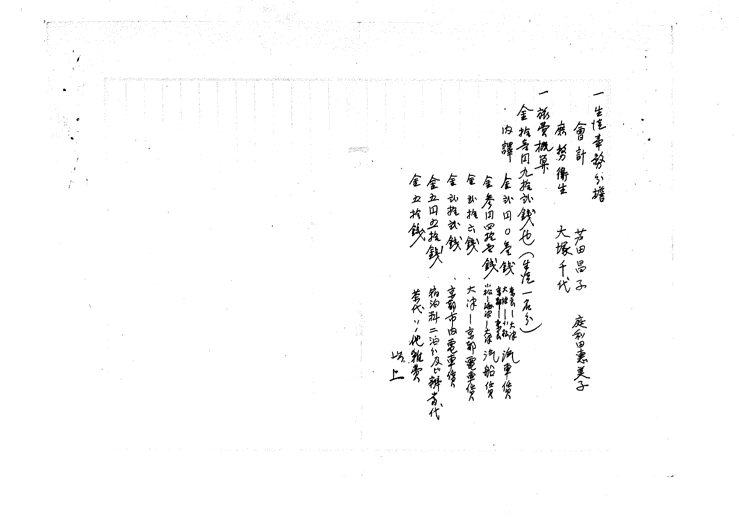 一 生徒事務分擔
會計 芦田昌子
庶務衛生 大塚千代 庭田惠美子
一 旅費概算
金拾壹円九拾弐錢也（生徒一名分）
内譯
金弐円〇壱錢 大津 京都 汽車賃
金参円四拾七錢 大津 汽船賃
金弐拾六錢 大津―京都電車賃
金弐拾弐錢 京都市内電車賃
金五円五拾錢 宿泊料二泊分及ビ辨当代
金五拾錢 茶代ソノ他雑費
以上